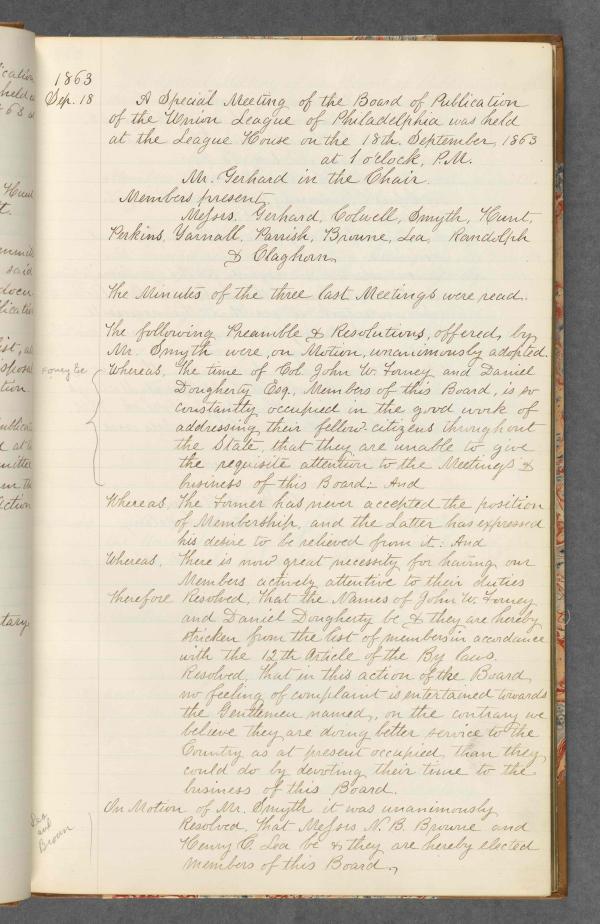 1863
Sep. 18
A Special Meeting of the Board of Publication
of the Union League of Philadelphia was held
at the League House on the 18th. September, 1863
at 1 o'clock, P.M.
Mr. Gerhard in the Chair.
Members present,
Messrs. Gerhard, Colwell, Smyth, Hunt,
Perkins, Yarnall, Parrish, Browne, Lea, Randolph
& Claghorn.
The Minutes of the three last Meetings were read.
The following Preamble & Resolutions, offered, by
Mr. Smyth were, on Motion, unanimously adopted.
Whereas, The time of Col. John W. Forney and Daniel
Dougherty Esq., Members of this Board, is so
constantly occupied in the good work of
addressing their fellow-citizens throughout
the State, that they are unable to give
the requisite attention to the Meetings &
business of this Board: And
Whereas, The Former has never accepted the position
of Membership, and the Latter has expressed
his desire to be relieved from it: And
Whereas, There is now great necessity for having our
Members actively attentive to their duties
Therefore Resolved, That the Names of John W. Forney
and Daniel Dougherty be & they are hereby
stricken from the list of members in accordance
with the 12th Article of the By laws.
Resolved, That in this action of the Board,
no feeling of complaint is entertained towards
the Gentlemen named, on the contrary we
believe they are doing better service to the
Country as at present occupied, than they
could do by devoting their time to the
business of this Board.
On Motion of Mr. Smyth it was unanimously
Resolved, That Messrs N. B. Browne and
Henry C. Lea be & they are hereby elected
Members of this Board.
Lea
and
Brown